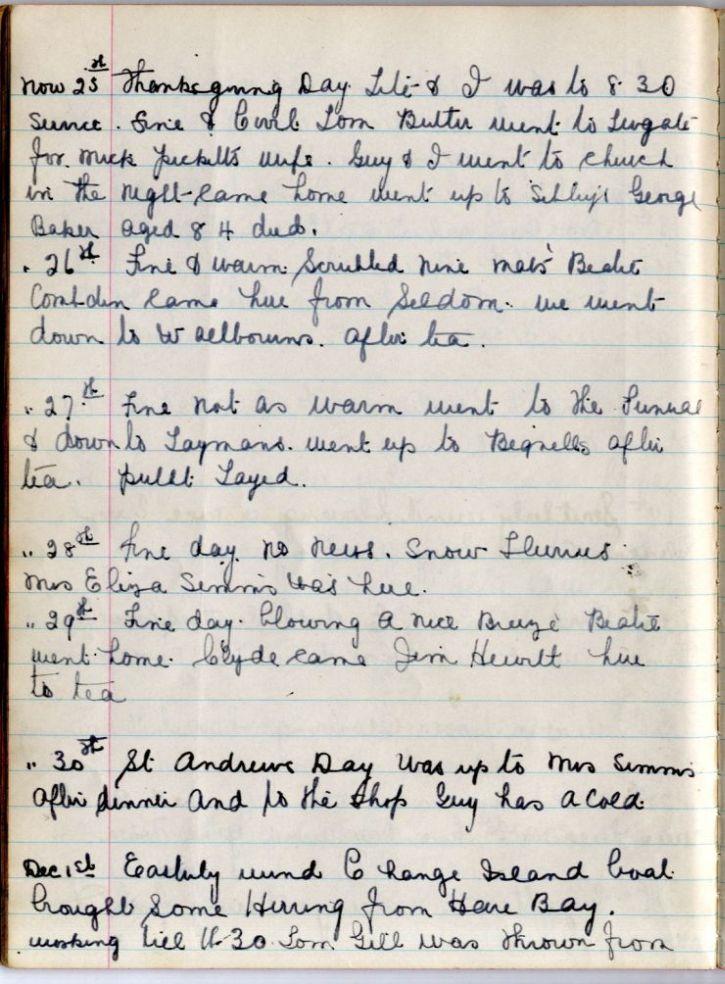 Nov 25th Thanksgiving Day Lile & I was to 8.30
Service. Fine & Civil Tom Butler went to Twgate
for Mick Picketts wife. Guy & I went to church
in the night - came home went up to George
Baker aged 84 died.
" 26th Fine & warm. Scrubbed nine mats Beatie
Combden came here from Seldom. we went
down to Wellbourns. after tea.
" 27th Fine not as warm went to the Funeral
& down to Laymans. went up to Begnells after
tea. Pullet Layed.
" 28th fine day. no news. Snow Flurries
Mrs Eliza Simms was here.
" 29th Fine day. blowing a nice Breeze Beatie
went home. Clyde came Jim Hewitt here
to tea
" 30th St Andrews Day was up to Mrs Simms
after dinner and to the Shop Guy has a cold.
Dec 1st Easterly wind Change Island boat
brought some Herring from Hare Bay.
working till 11-30 Tom Gill was thrown from